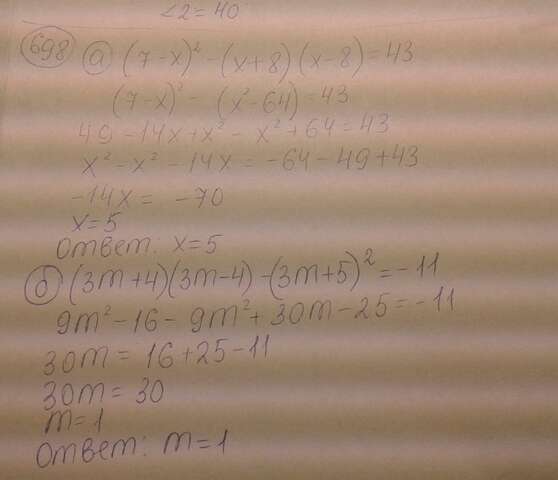 ∠2 = 40
698 а) (7-x)² - (x+8)(x-8) = 43
(7-x)² - (x²-64) = 43
49 - 14x + x² - x² + 64 = 43
x² - x² - 14x = -64 - 49 + 43
-14x = -70
x = 5
Ответ: x = 5
б) (3m+4)(3m-4) - (3m+5)² = -11
9m² - 16 - 9m² + 30m - 25 = -11
30m = 16 + 25 - 11
30m = 30
m = 1
Ответ: m = 1